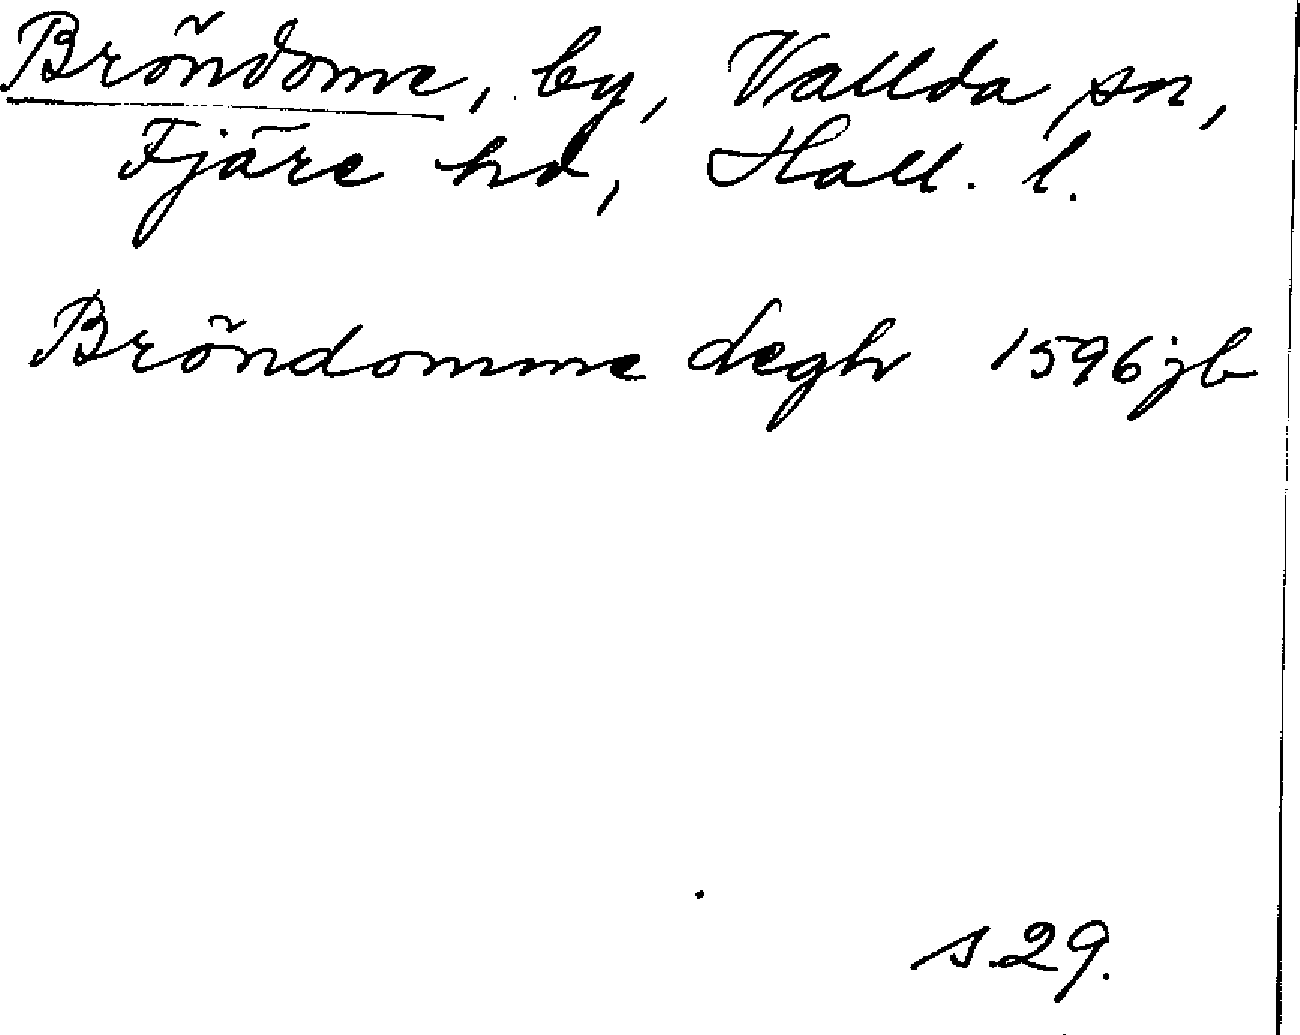 Bröndome, by, Vallda sn,
Fjäre hd, Hall. l.
Bröndomme Legh 1596 jb
s 29.